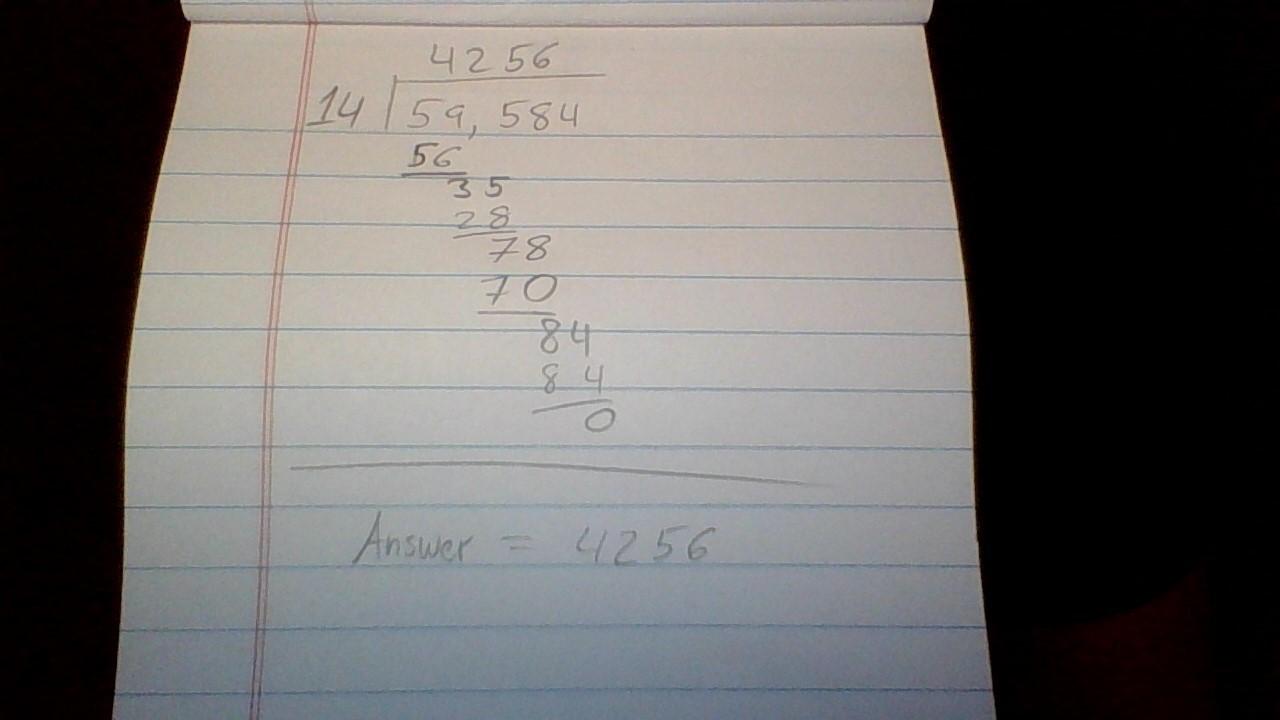 4256
14 59,584
56
35
28
78
70
84
84
0
Answer = 4256